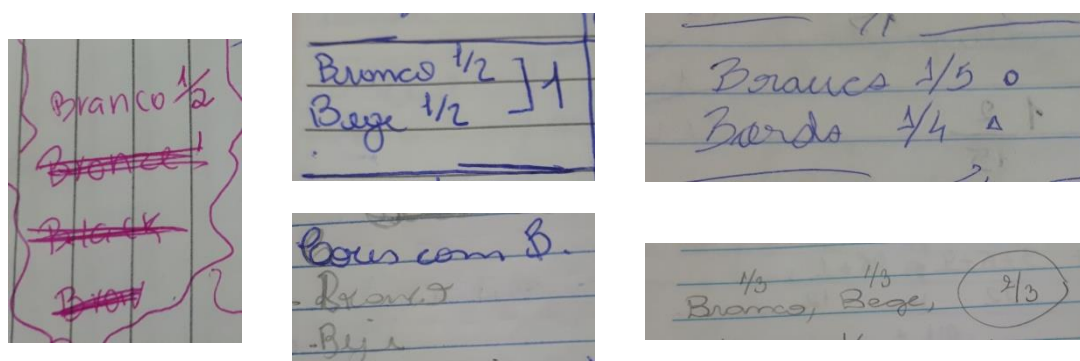 Branco 1/2
Bronze 1
Black
Brow
Branco 1/2
Bege 1/2 ] 1
Cores com B.
- Branco
- Beje
Branco 1/5 o
Bordo 1/4 △
1/3 1/3
Branco, Bege, 2/3